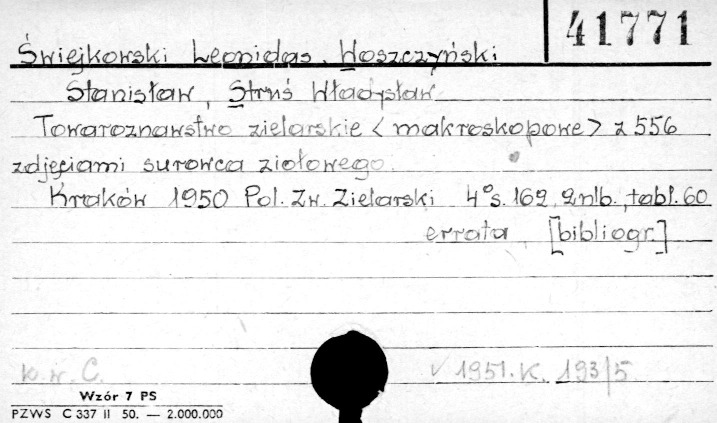 41771
Świejkowski Leonidas, Woszczyński
Stanisław, Struś Władysław.
Towaroznawstwo zielarskie <makroskopowe> z 556
zdjęciami surowca ziołowego.
Kraków 1950 Pol. Zw. Zielarski 4° s. 162, 2nlb., tabl. 60
errata, [bibliogr.]
k.w. C. √ 1951. K. 193/5
Wzór 7 PS
PZWS C 337 II 50. — 2.000.000